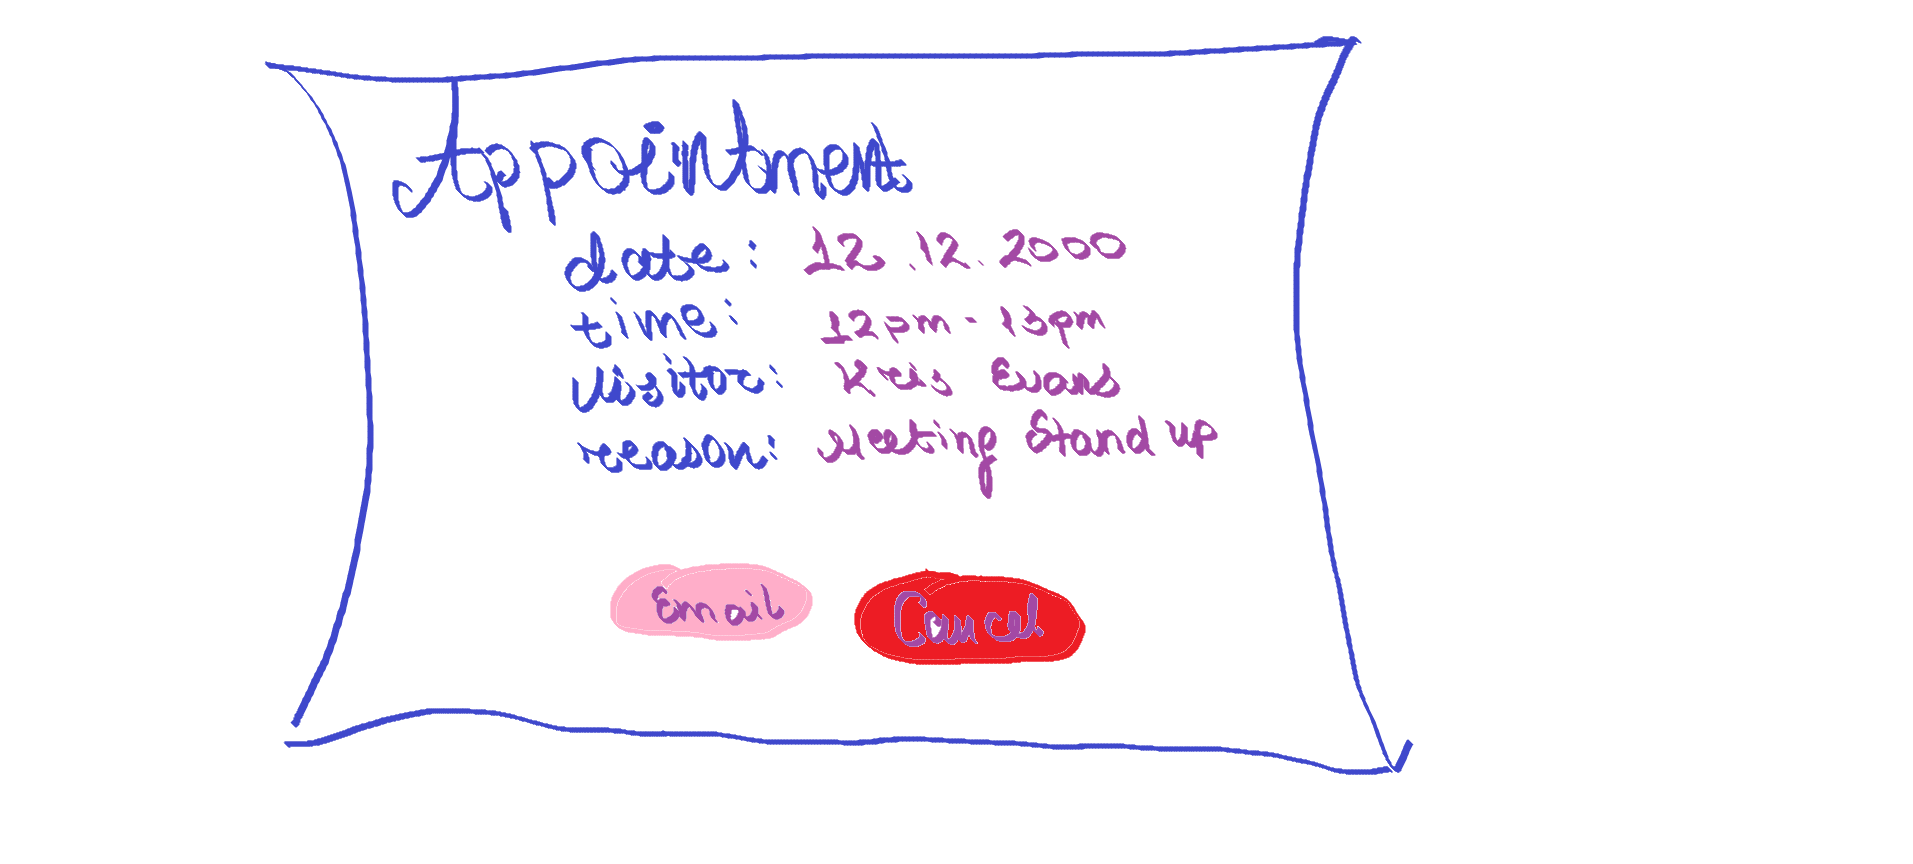 Appointment
date: 12.12.2000
time: 12pm - 13pm
visitor: Kris Evans
reason: Meeting Stand up
Email Cancel